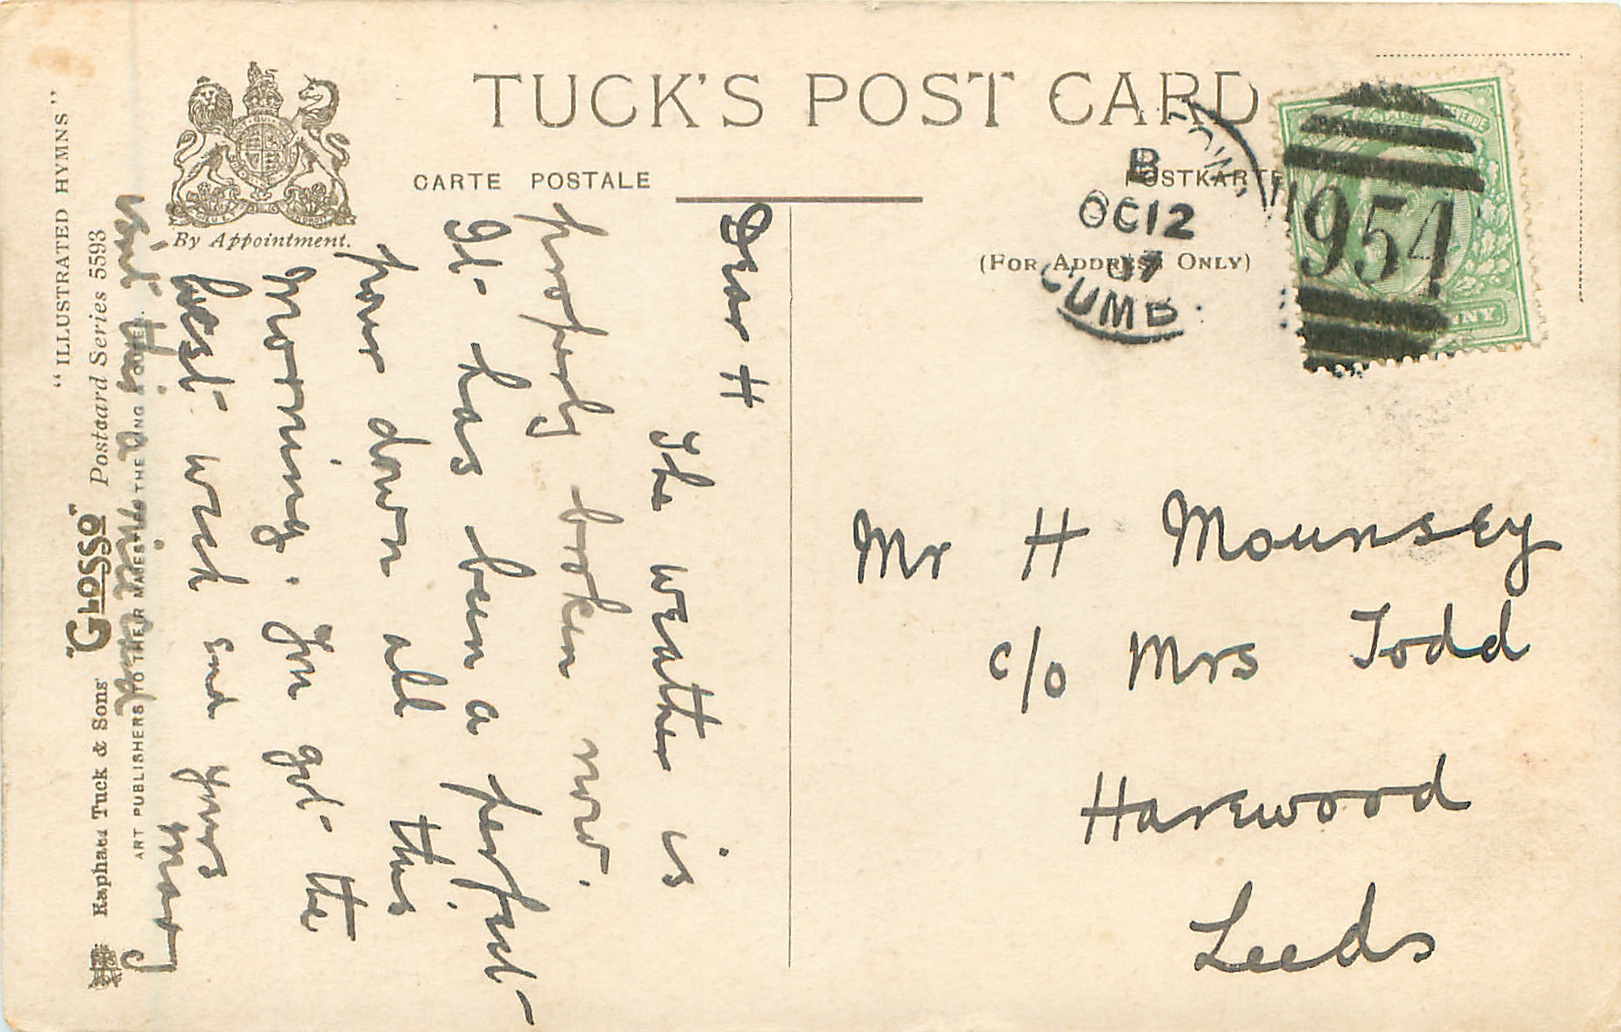 TUCK'S POST CARD
CARTE POSTALE
POSTKARTE
(FOR ADDRESS ONLY)
By Appointment.
B
OC 12
07
CUMB.
954
Mr H Mounsey
c/o Mrs Todd
Harewood
Leeds
Dear H
The weather is
properly broken now.
It has been a perfect
pour down all this
morning. You got the
best week end yours
Mary
"ILLUSTRATED HYMNS"
Raphael Tuck & Sons' "GLOSSO" Postcard Series 5593
ART PUBLISHERS TO THEIR MAJESTIES THE KING & QUEEN.